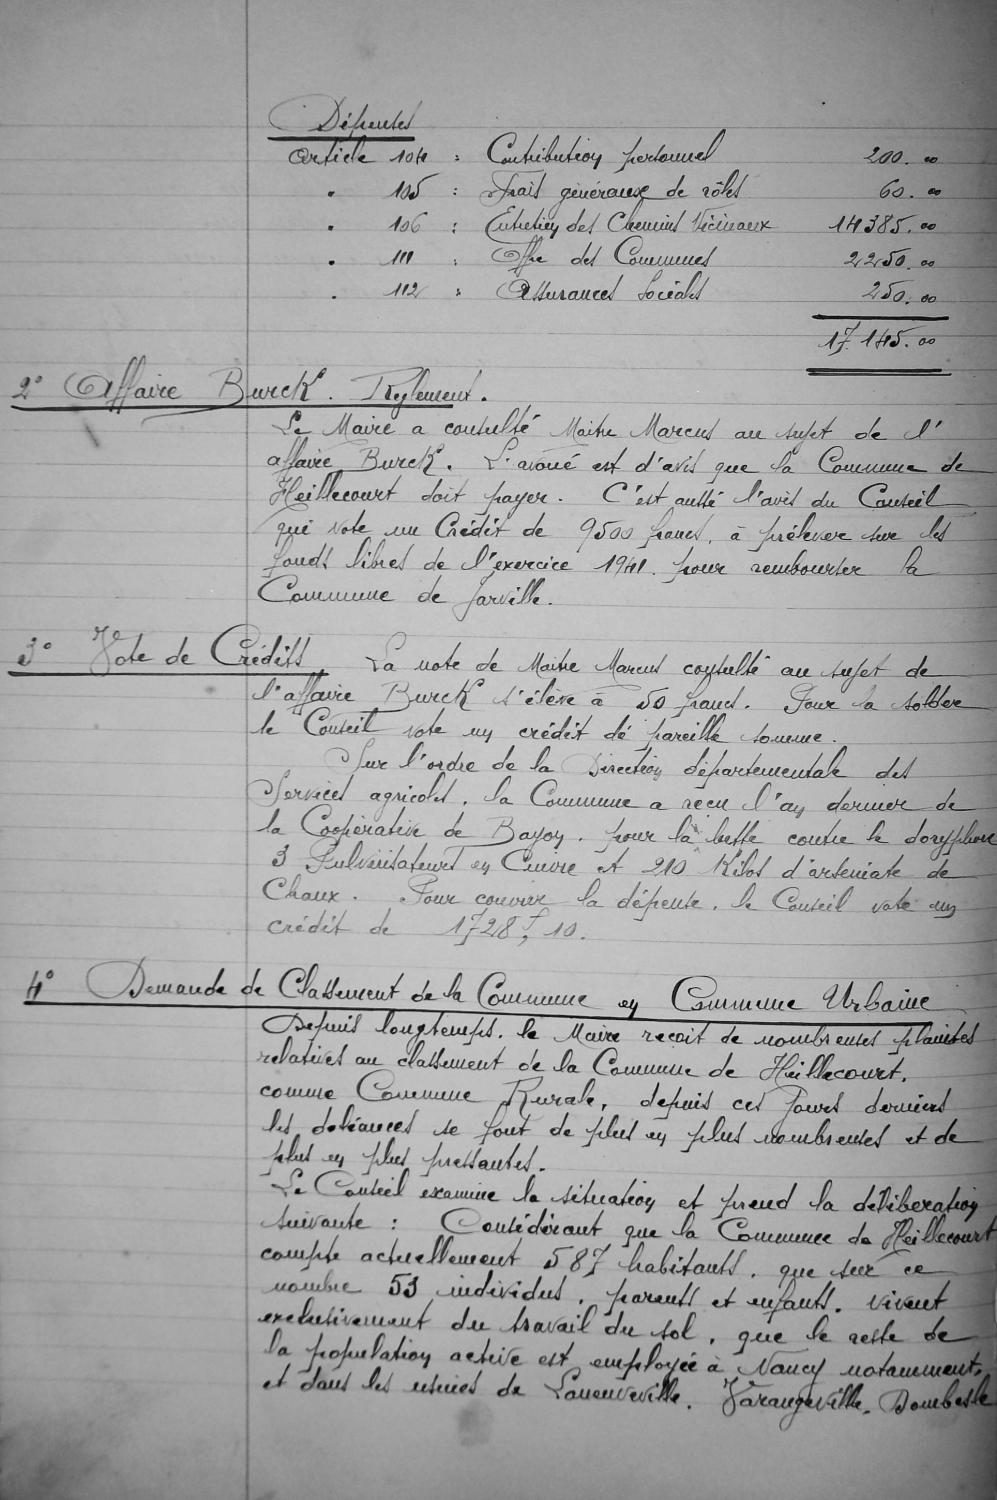 Dépenses
Article 104 : Contribution personnel 200.00
" 105 : Frais généraux de rôles 60.00
" 106 : Entretien des Chemins Vicinaux 14385.00
" 111 : Offre des Communes 2250.00
" 112 : Assurances Sociales 250.00
17.145.00
2° Affaire Burck. Règlement.
Le Maire a consulté Maitre Marcus au sujet de l'
affaire Burck. L'avoué est d'avis que la Commune de
Heillecourt doit payer. C'est aussi l'avis du Conseil
qui vote un Crédit de 9500 francs, à prélever sur les
fonds libres de l'exercice 1941. pour rembourser la
Commune de Jarville.
3° Vote de Crédits La note de Maitre Marcus consulté au sujet de
l'affaire Burck s'élève à 50 francs. Pour la solder
le Conseil vote un crédit de pareille somme.
Sur l'ordre de la Direction départementale des
Services agricoles, la Commune a reçu l'an dernier de
la Coopérative de Bayon. pour la lutte contre le doryphore
3 Pulvérisateurs en Cuivre et 210 Kilos d'arseniate de
Chaux. Pour couvrir la dépense, le Conseil vote un
crédit de 1728f,10.
4° Demande de Classement de la Commune en Commune Urbaine
Depuis longtemps. le Maire reçoit de nombreuses plaintes
relatives au classement de la Commune de Heillecourt,
comme Commune Rurale, depuis ces Jours derniers
les doléances se font de plus en plus nombreuses et de
plus en plus pressantes.
Le Conseil examine la situation et prend la déliberation
suivante : Considérant que la Commune de Heillecourt
compte actuellement 587 habitants, que sur ce
nombre 53 individus, parents et enfants, vivent
exclusivement du travail du sol, que le reste de
la population active est employée à Nancy notamment,
et dans les usines de Laneuveville. Varangeville. Dombasle